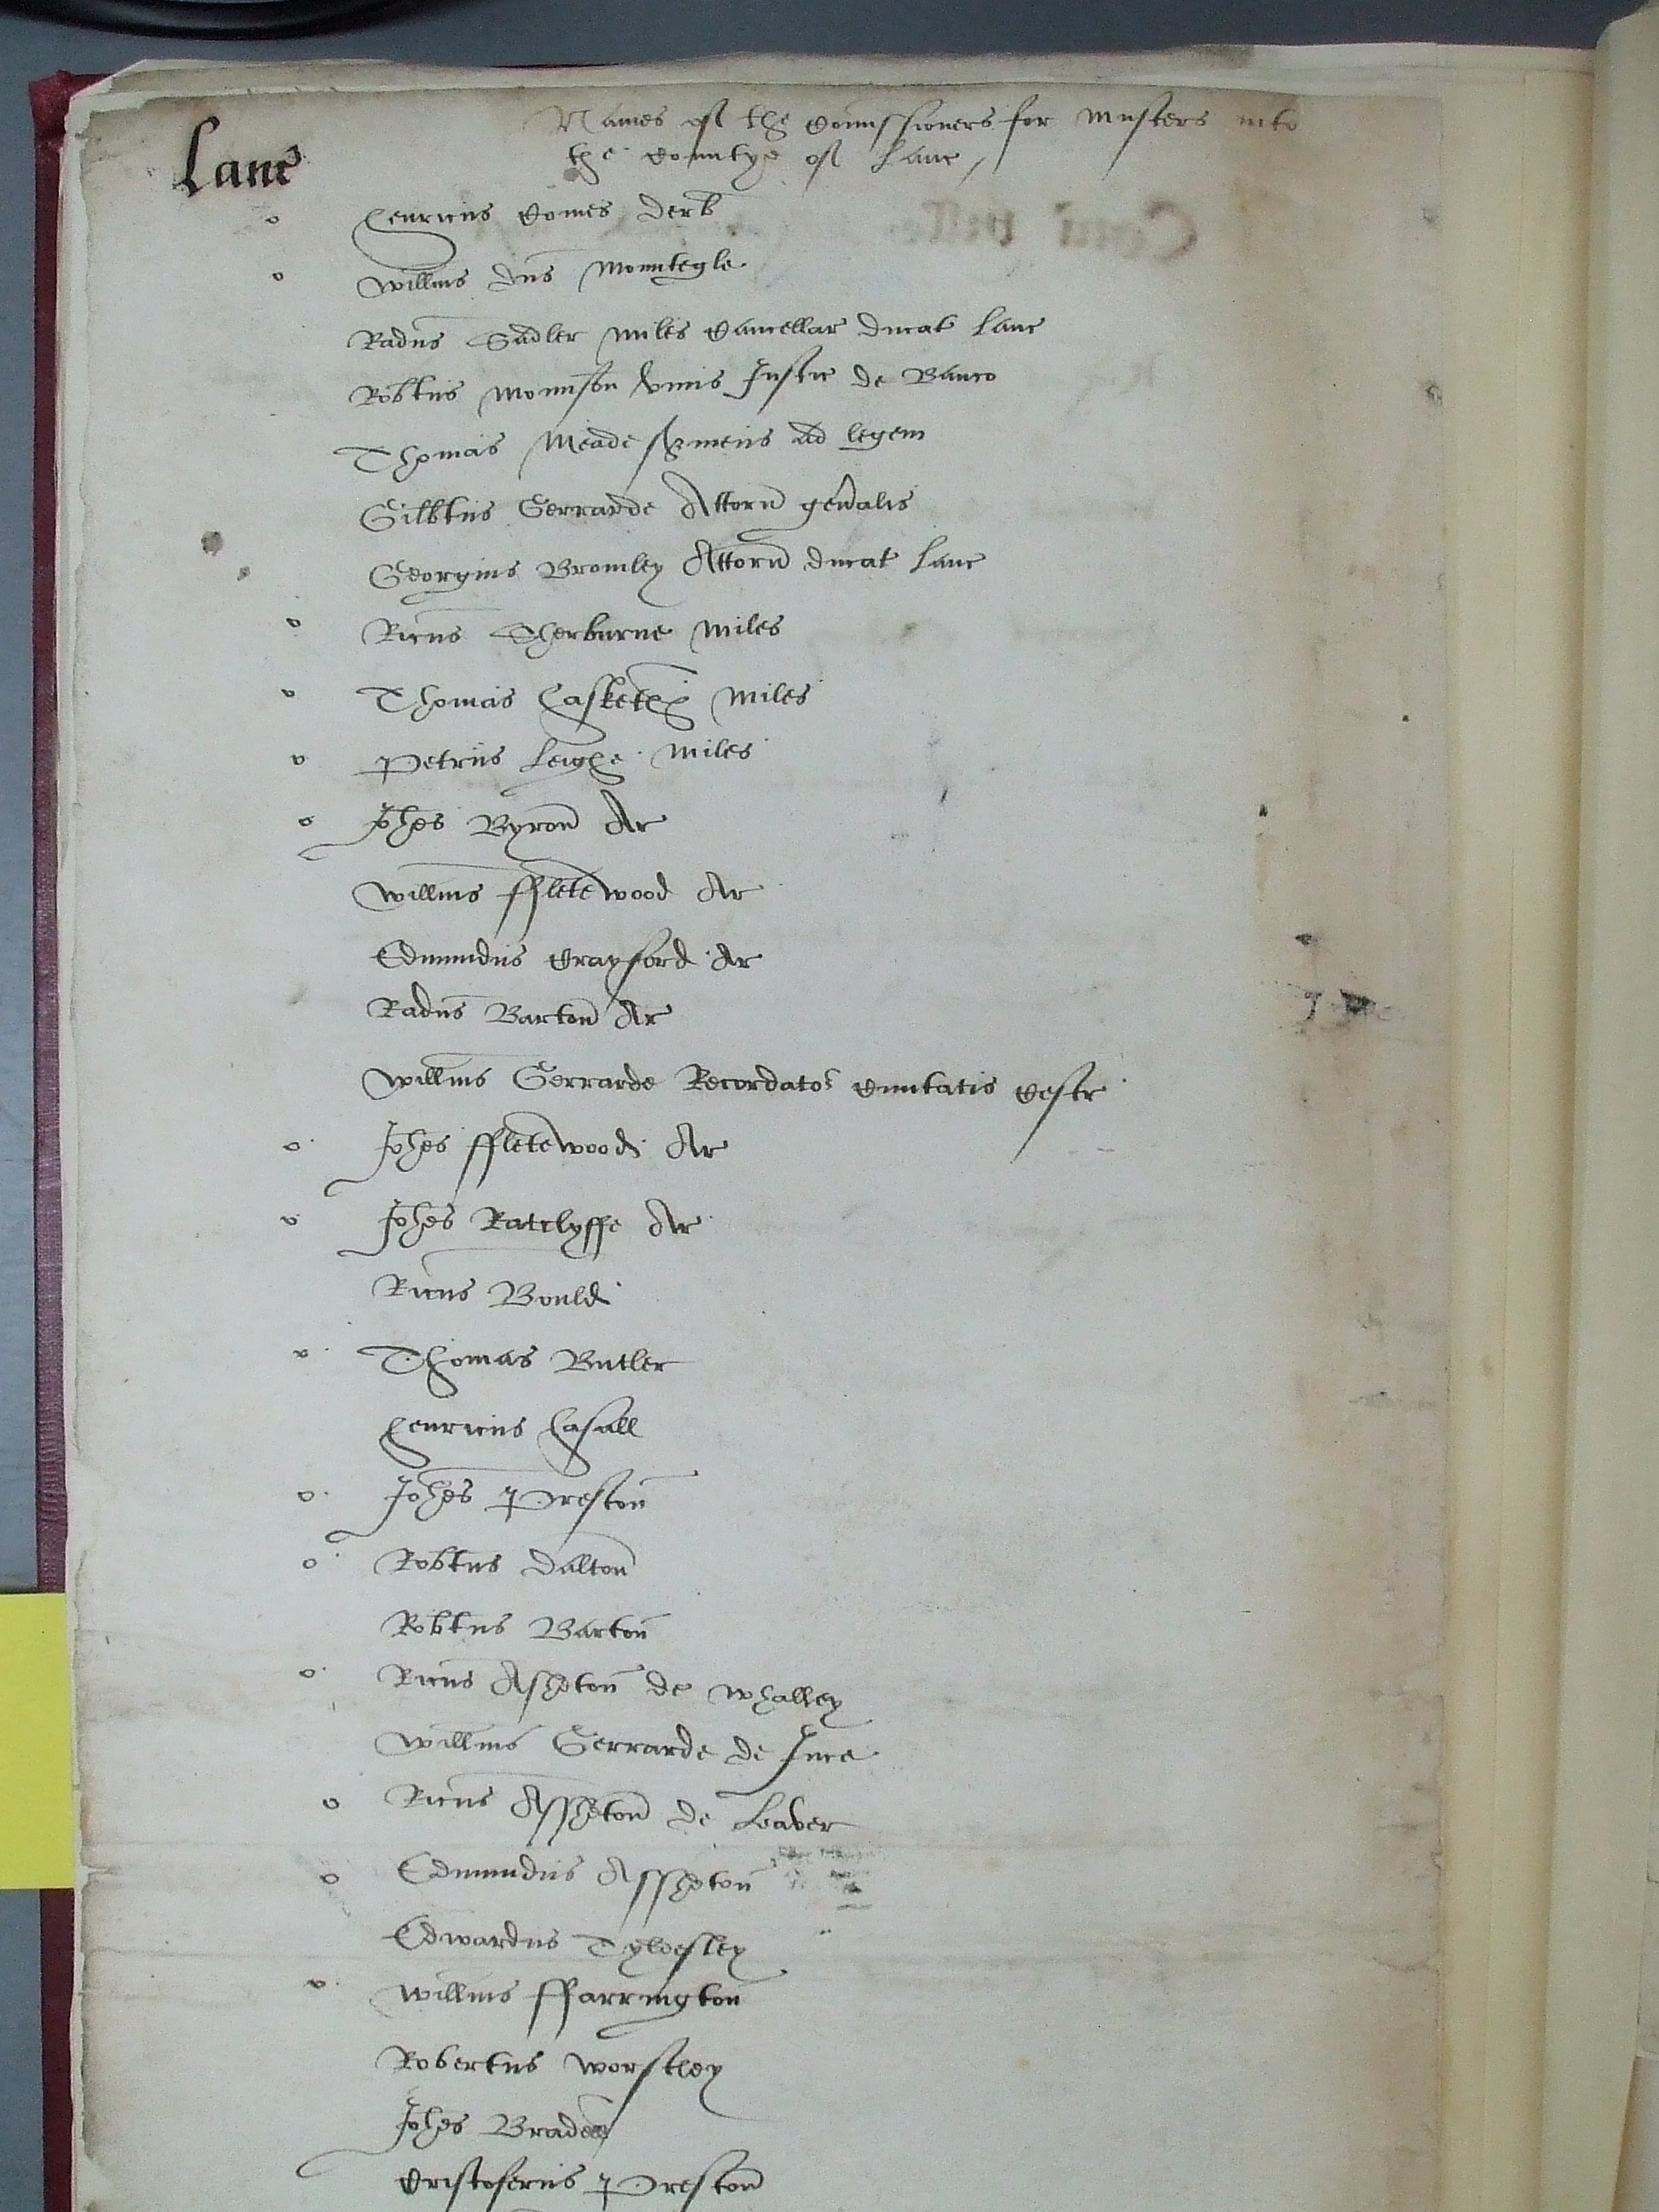 Names of the Comissioners for musters into
the Countye of Lanc
Lanc
Henricus Comes Derb
Willms dns Mountegle
Radus Sadler miles Cancellar ducat Lanc
Robtus Mounson unus Justic de Banco
Thomas Meade ad legem
Gilbtus Gerrarde Attorn genalis
Georgius Bromley Attorn ducat Lanc
Ricus Sherburne miles
Thomas Hasketh miles
Petrus Leighe miles
Johes Byron Ar
Willms ffletewood Ar
Edmundus Ar
Radus Barton Ar
Willms Gerrarde Recordator Civitatis Cestr
Johes ffletewood Ar
Johes Ratclyffe Ar
Ricus Bould
Thomas Butler
Henricus Hasall
Johes Preston
Robtus Dalton
Robtus Barton
Ricus Asheton de Whalley
Willms Gerrarde de Ince
Ricus Assheton de Leaver
Edmundus Assheton
Edwardus Tyldesley
Willms ffarrington
Robertus Worstley
Johes
Cristoferus Preston